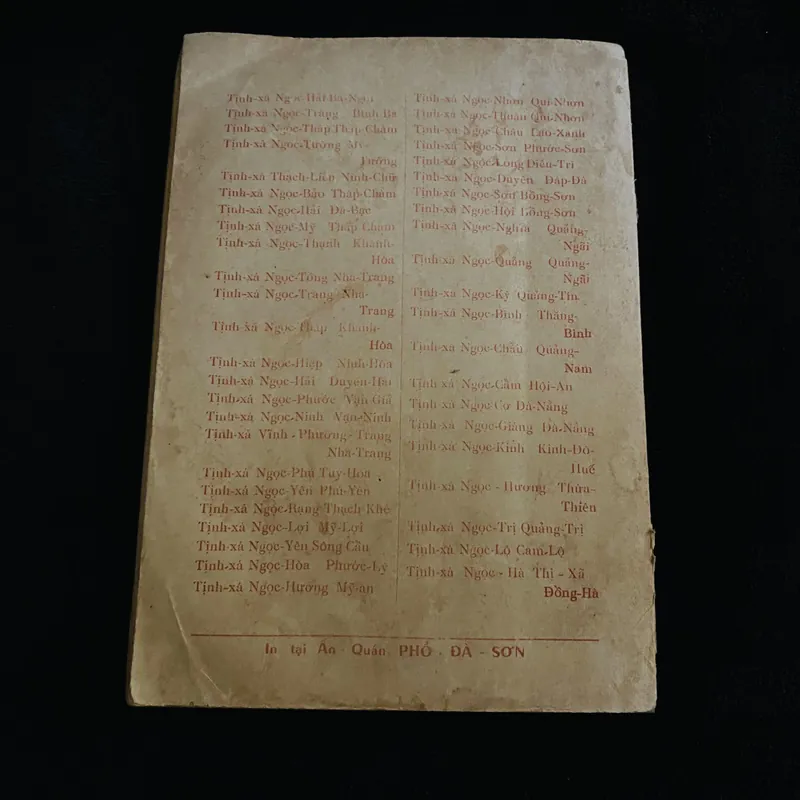 Tịnh-xá Ngọc-Hải Bà-Ngòi
Tịnh-xá Ngọc-Trang Bình-Ba
Tịnh-xá Ngọc-Tháp Tháp-Chàm
Tịnh-xá Ngọc-Tường Mỹ-
Tường
Tịnh-xá Thạch-Liên Ninh-Chữ
Tịnh-xá Ngọc-Bảo Tháp-Chàm
Tịnh-xá Ngọc-Hải Đá-Bạc
Tịnh-xá Ngọc-Mỹ Tháp Chàm
Tịnh-xá Ngọc-Thạnh Khánh-
Hòa
Tịnh-xá Ngọc-Tòng Nha-Trang
Tịnh-xá Ngọc-Trang Nha-
Trang
Tịnh-xá Ngọc-Tháp Khánh-
Hòa
Tịnh-xá Ngọc-Hiệp Ninh-Hòa
Tịnh-xá Ngọc-Hải Duyên-Hải
Tịnh-xá Ngọc-Phước Vạn-Giả
Tịnh-xá Ngọc-Ninh Vạn-Ninh
Tịnh-xá Vĩnh - Phương-Trang
Nha-Trang
Tịnh-xá Ngọc-Phú Tuy-Hòa
Tịnh-xá Ngọc-Yên Phú-Yên
Tịnh-xá Ngọc-Rạng Thạch-Khê
Tịnh-xá Ngọc-Lợi Mỹ-Lợi
Tịnh-xá Ngọc-Yên Sông Cầu
Tịnh-xá Ngọc-Hòa Phước-Lý
Tịnh-xá Ngọc-Hương Mỹ-an
Tịnh-xá Ngọc-Nhơn Qui-Nhơn
Tịnh-xá Ngọc-Thuân Qui-Nhơn
Tịnh-xá Ngọc-Châu Lao-Xanh
Tịnh-xá Ngọc-Sơn Phước-Sơn
Tịnh-xá Ngọc-Long Diêu-Trì
Tịnh-xá Ngọc-Duyên Đập-Đá
Tịnh-xá Ngọc-Sơn Bồng-Sơn
Tịnh-xá Ngọc-Hội Bồng-Sơn
Tịnh-xá Ngọc-Nghĩa Quảng-
Ngãi
Tịnh-xá Ngọc-Quảng Quảng-
Ngãi
Tịnh-xá Ngọc-Kỳ Quảng-Tín
Tịnh-xá Ngọc-Bình Thăng-
Bình
Tịnh-xá Ngọc-Châu Quảng-
Nam
Tịnh-xá Ngọc-Cẩm Hội-An
Tịnh xá Ngọc-Cơ Đà-Nẵng
Tịnh xá Ngọc-Giáng Đà-Nẵng
Tịnh-xá Ngọc-Kinh Kinh-Đô-
Huế
Tịnh-xá Ngọc - Hương Thừa-
Thiên
Tịnh-xá Ngọc-Trị Quảng-Trị
Tịnh-xá Ngọc-Lộ Cam-Lộ
Tịnh-xá Ngọc - Hà Thị - Xã
Đồng-Hà
In tại Ấn - Quán PHỔ - ĐÀ - SƠN